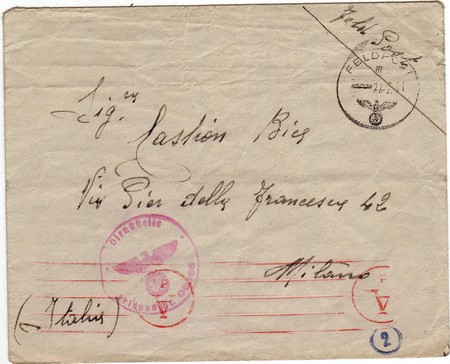 Feld Post
FELDPOST
Sig.
Castion Bice
Via Pier della Francesca 42
Milano
(Italia)
Dienststelle
Feldpostnr.
V
V
2